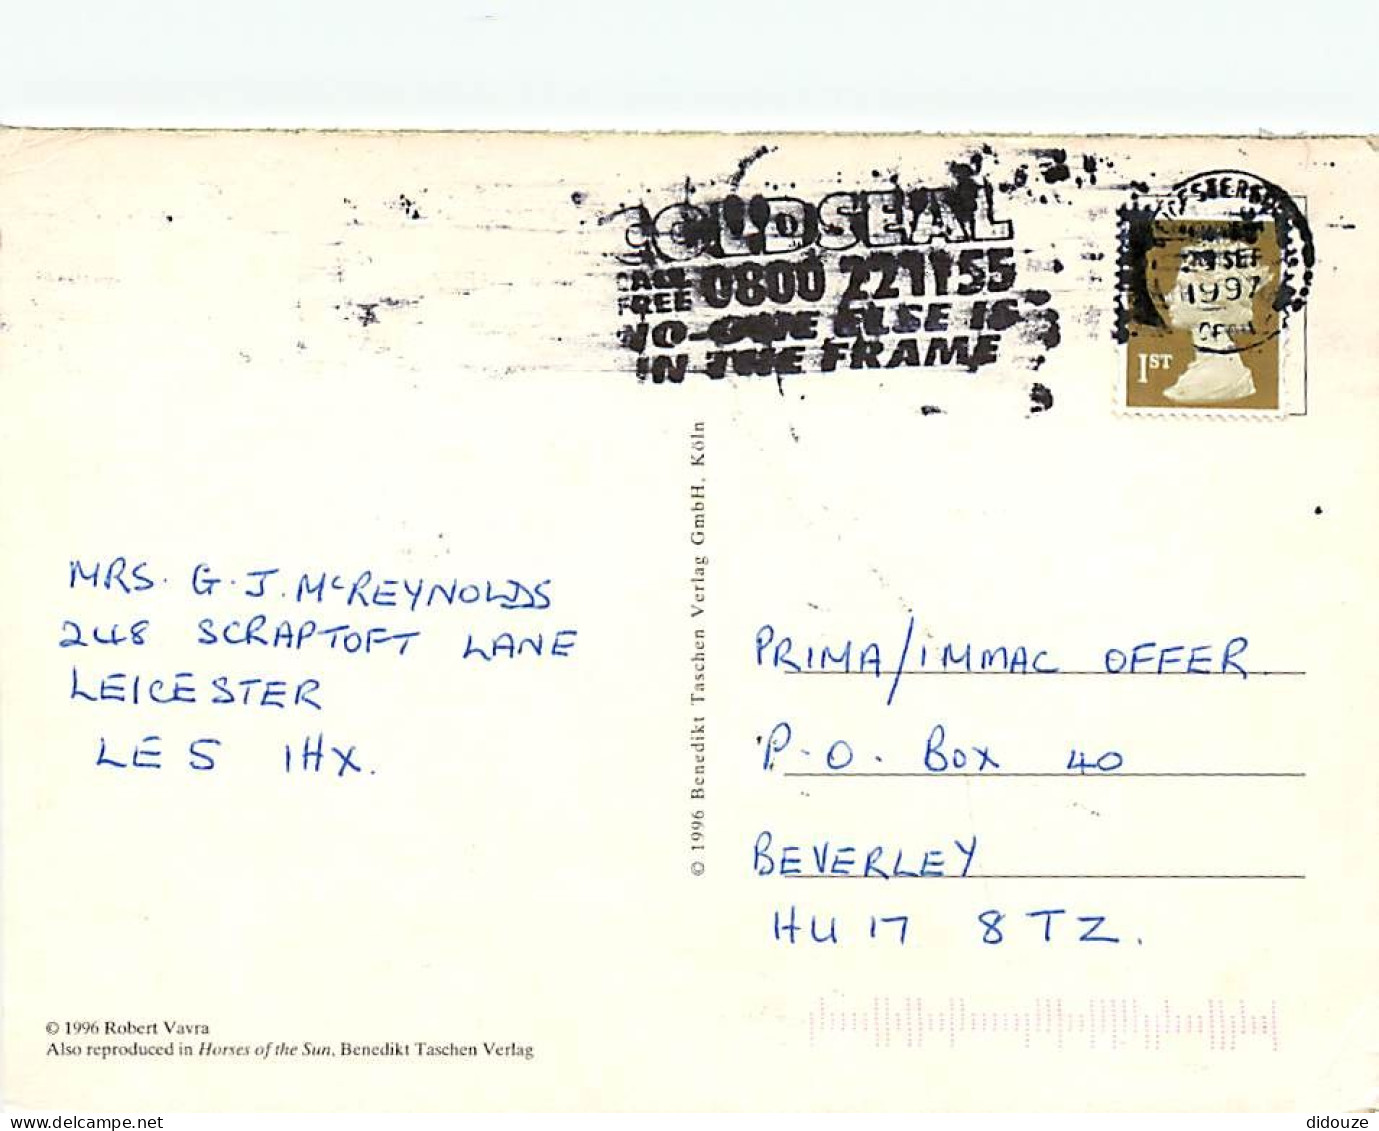 COLDSEAL
CALL FREE 0800 221155
NO-ONE ELSE IS
IN THE FRAME
SEP
1997
1ST
MRS. G. J. McREYNOLDS
248 SCRAPTOFT LANE
LEICESTER
LE5 1HX.
© 1996 Benedikt Taschen Verlag GmbH, Köln
PRIMA/IMMAC OFFER.
P.O. BOX 40
BEVERLEY
HU17 8TZ.
© 1996 Robert Vavra
Also reproduced in Horses of the Sun, Benedikt Taschen Verlag
delcampe.net
didouze